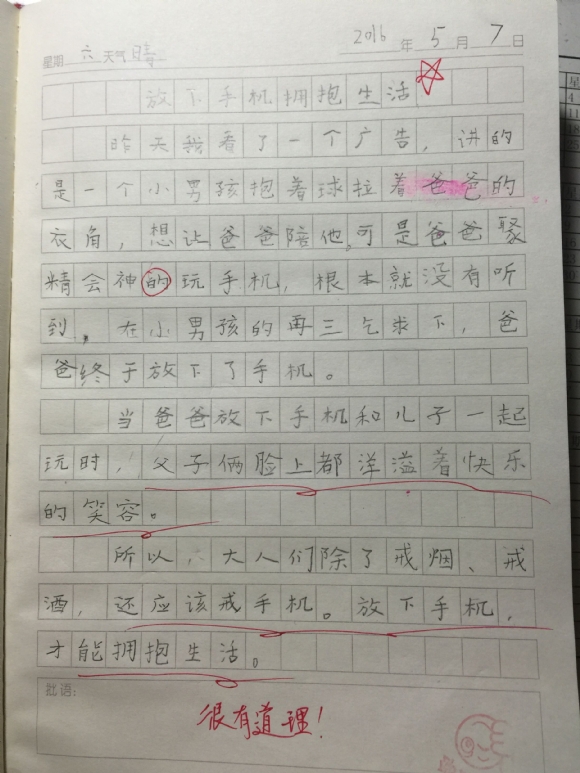 2016年5月7日
星期六天气晴
放下手机拥抱生活
昨天我看了一个广告，讲的
是一个小男孩抱着球拉着爸爸的
衣角，想让爸爸陪他。可是爸爸聚
精会神的玩手机，根本就没有听
到。在小男孩的再三乞求下，爸
爸终于放下了手机。
当爸爸放下手机和儿子一起
玩时，父子俩脸上都洋溢着快乐
的笑容。
所以，大人们除了戒烟、戒
酒，还应该戒手机。放下手机，
才能拥抱生活。
批语：
很有道理！